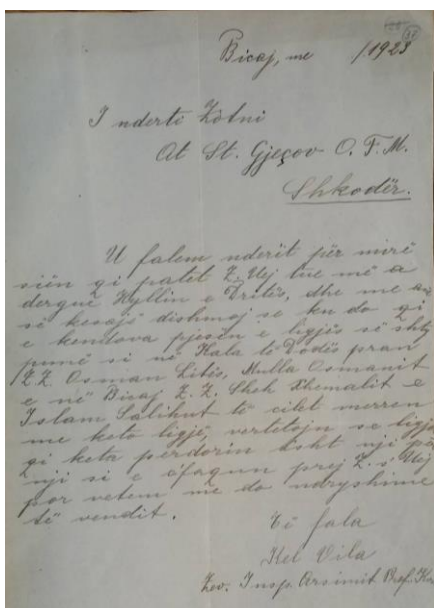 Bicaj, me /1923
I nderti Zotni
At St. Gjeçov O. F. M.
Shkodër.
U falem nderit për mirë
sien qi patët Z. Uej tue më a
dergue Hyllin e Dritës, dhe me anë
së kesajë dishmoj se ku do qi
e kendova pjesën e ligjës së shty
punë si në Kala të Dodës pran
Z.Z. Osman Litës, Mulla Osmanit
e në Bicaj Z. Z. Sheh Xhemalit e
Islam Salihut të cilët merren
me keto ligjë, vertetojn se ligja
qi keta përdorin âsht nji për
nji si e çfaqun prej Z. s' Uej
por vetem me do ndryshime
të vendit.
Të fala
Kel Vila
Zev. Insp. Arsimit Pref.